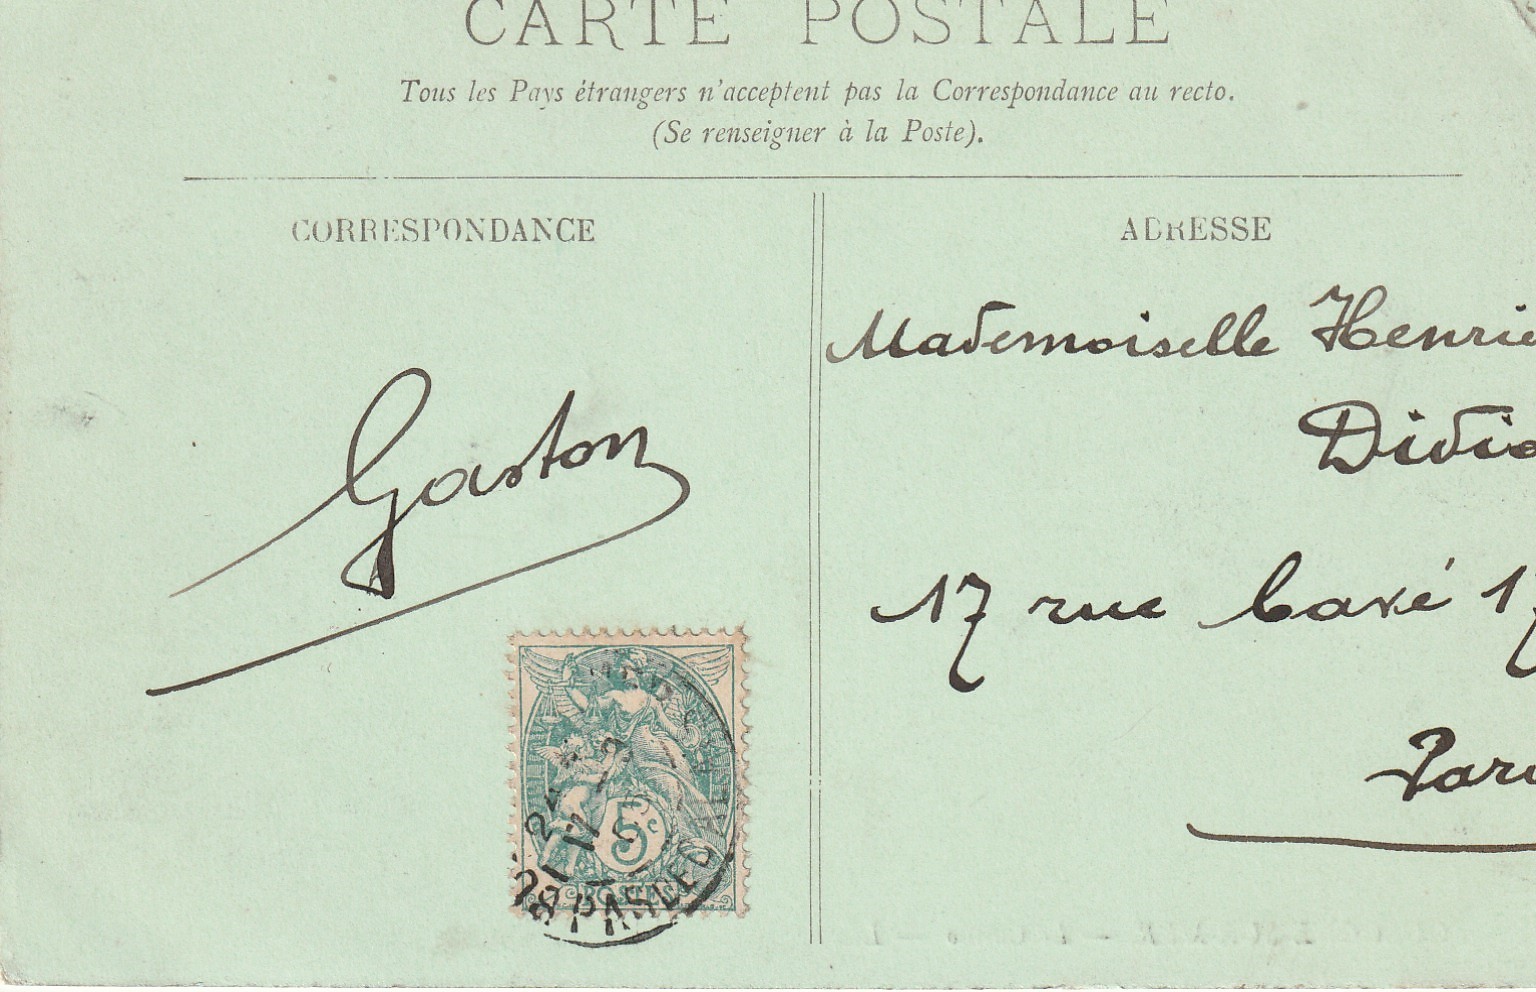 CARTE POSTALE
Tous les Pays étrangers n'acceptent pas la Correspondance au recto.
(Se renseigner à la Poste).
CORRESPONDANCE
ADRESSE
Mademoiselle Henrie
Didio
17 rue Cavé 17
Paris
Gaston
5c
POSTES